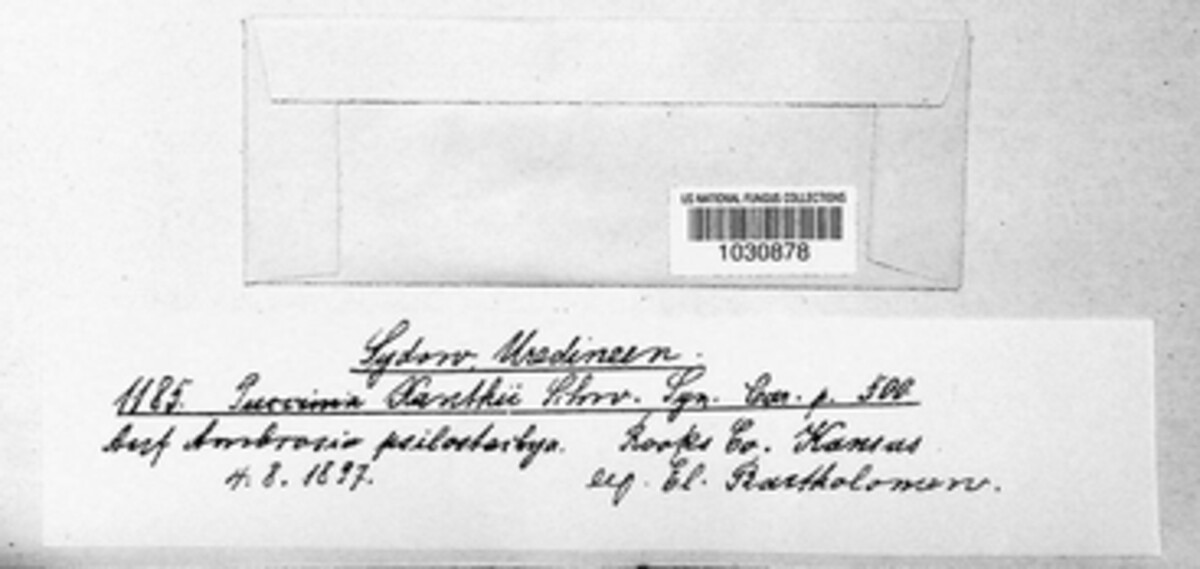 US NATIONAL FUNGUS COLLECTIONS
1030878
Sydow, Uredineen.
1185. Puccinia Xanthii Schw. Syn. Car. p. 500
Auf Ambrosia psilostachya. Rooks Co. Kansas
4. 8. 1897. leg. El. Bartholomew.